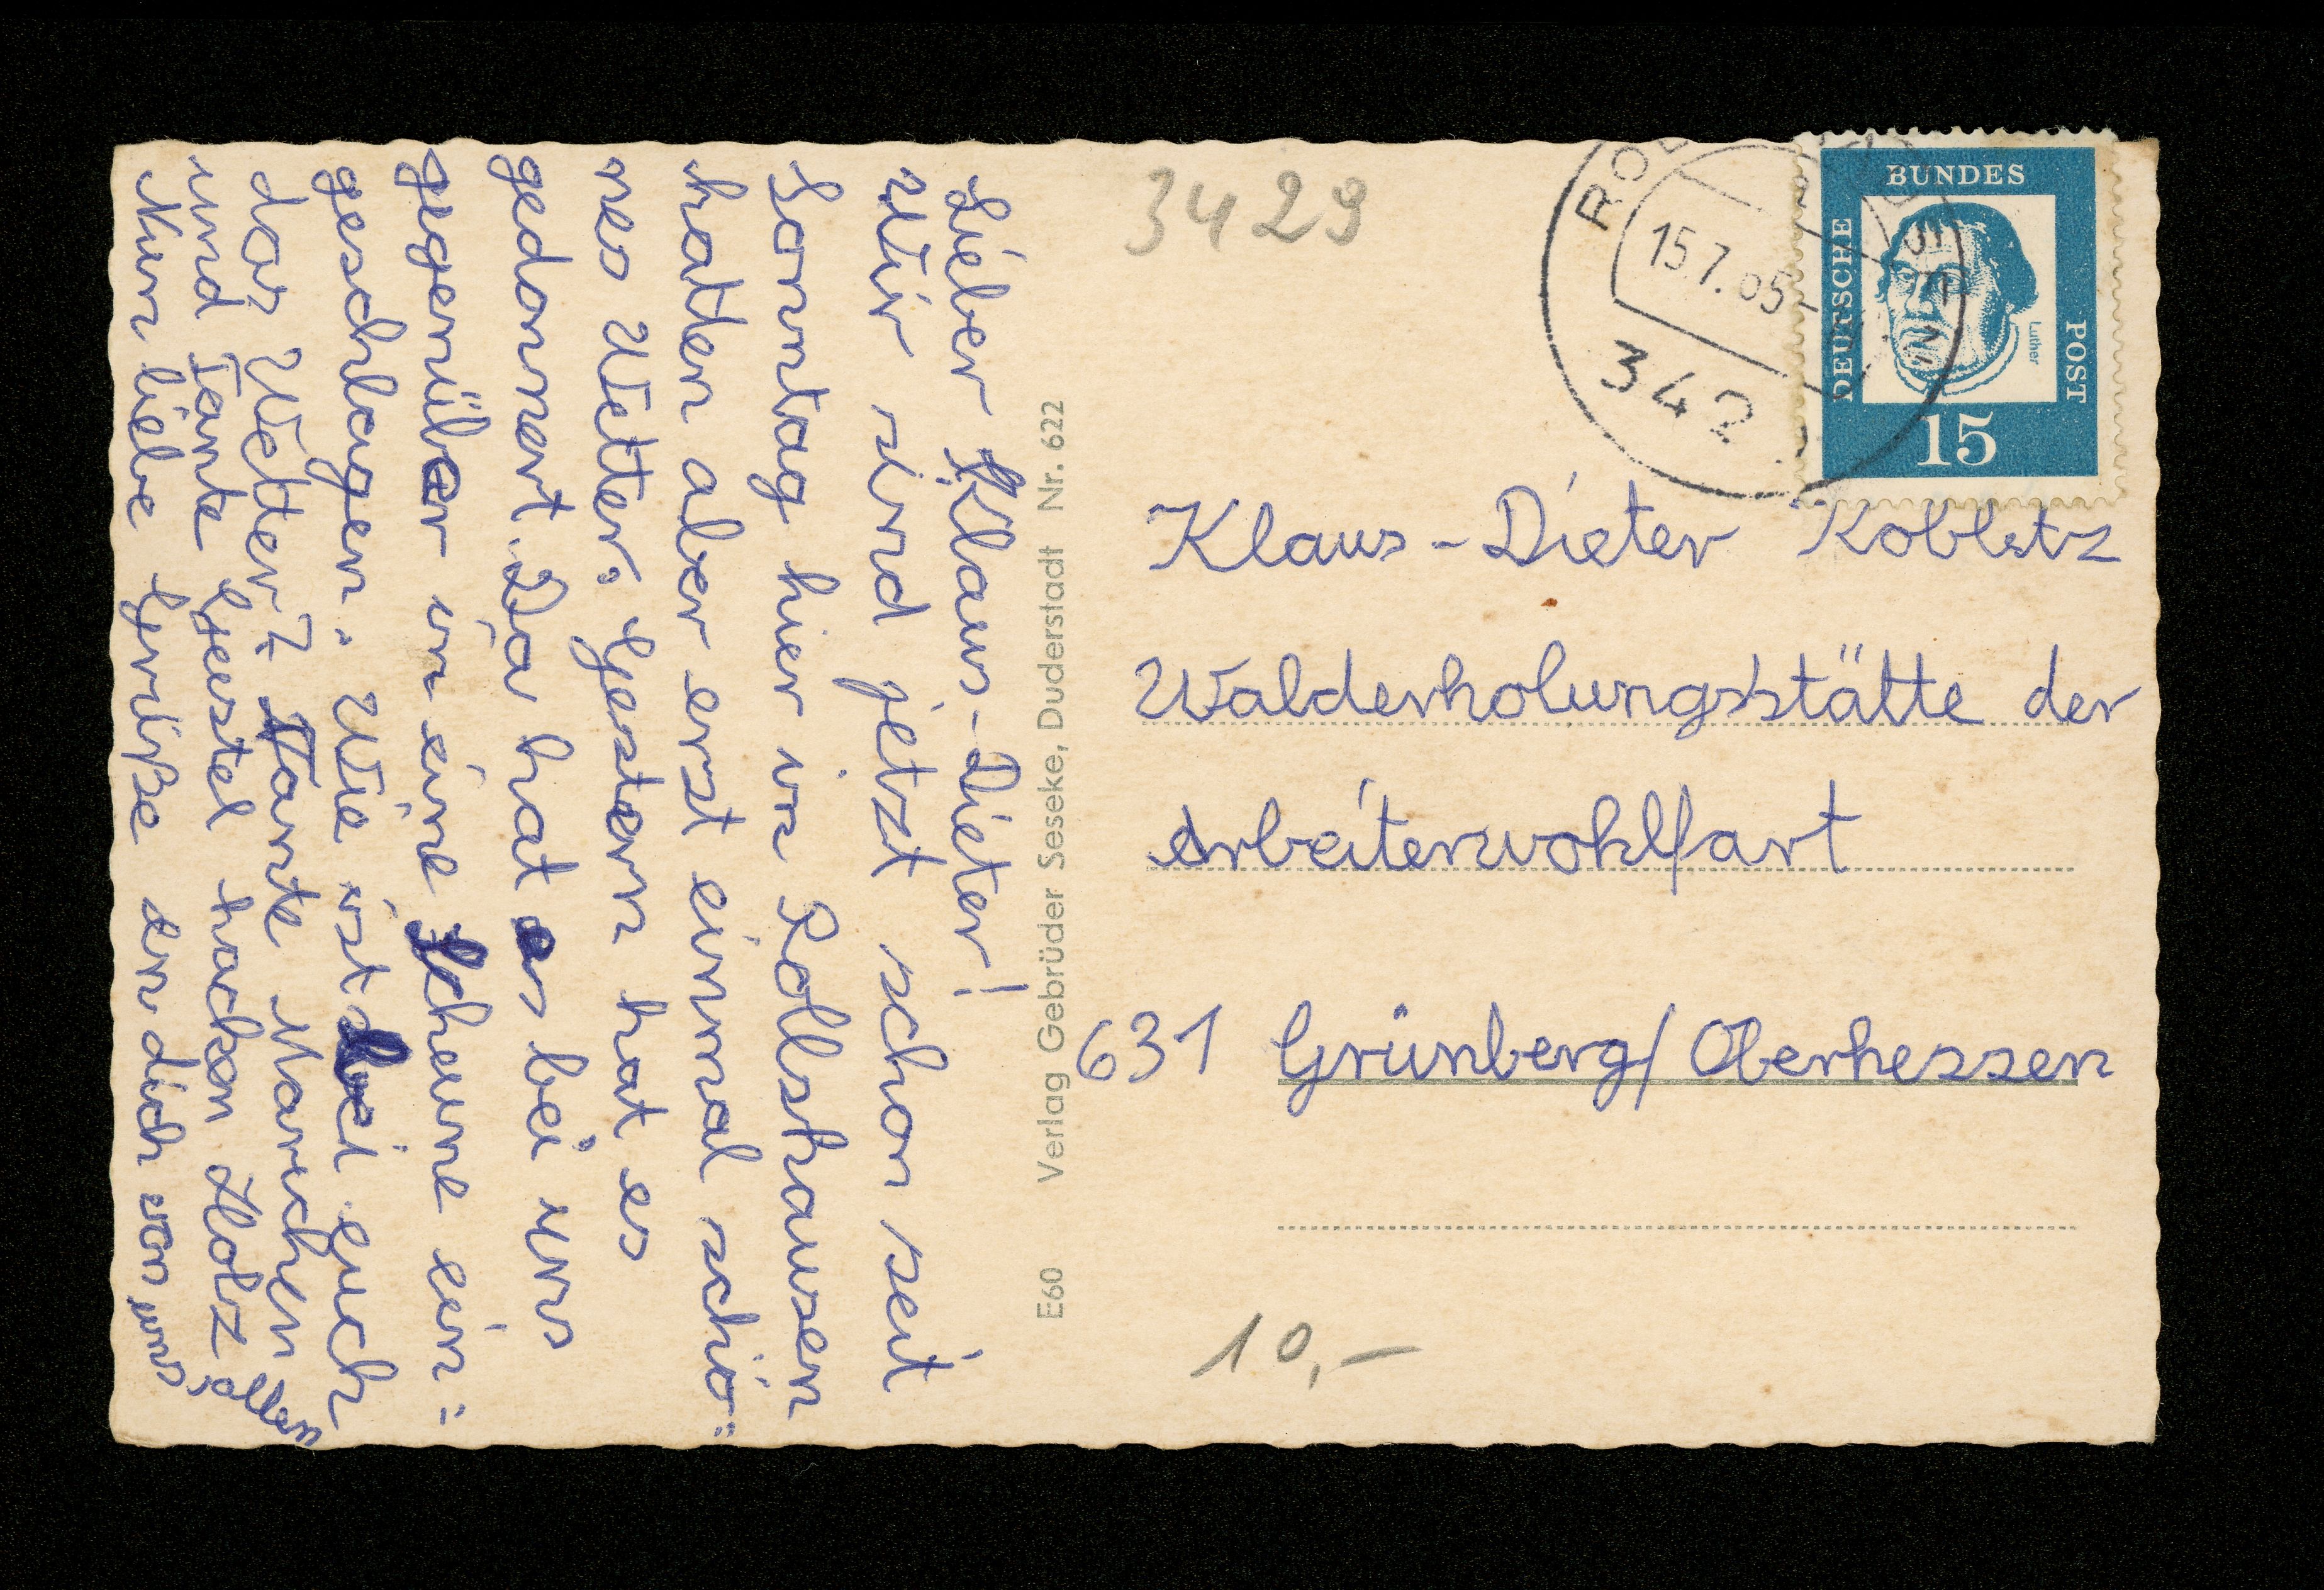 Lieber Klaus-Dieter!
Wir sind jetzt schon seit
Sonntag hier in Rollshausen
hatten aber erst einmal schö=
nes Wetter. Gestern hat es
gedonnert. Da hat es bei uns
gegenüber in eine Scheune ein=
geschlagen. Wie ist bei euch
das Wetter? Tante Mariechen
und Tante Gustel hacken Holz
Nun liebe Grüße an dich von uns
allen
E60 Verlag Gebrüder Seseke, Duderstadt Nr. 622
3429
15.7.65
342
BUNDES
DEUTSCHE
POST
Luther
15
Klaus-Dieter Kobletz
Walderholungsstätte der
Arbeiterwohlfart
631 Grünberg/Oberhessen
10,-